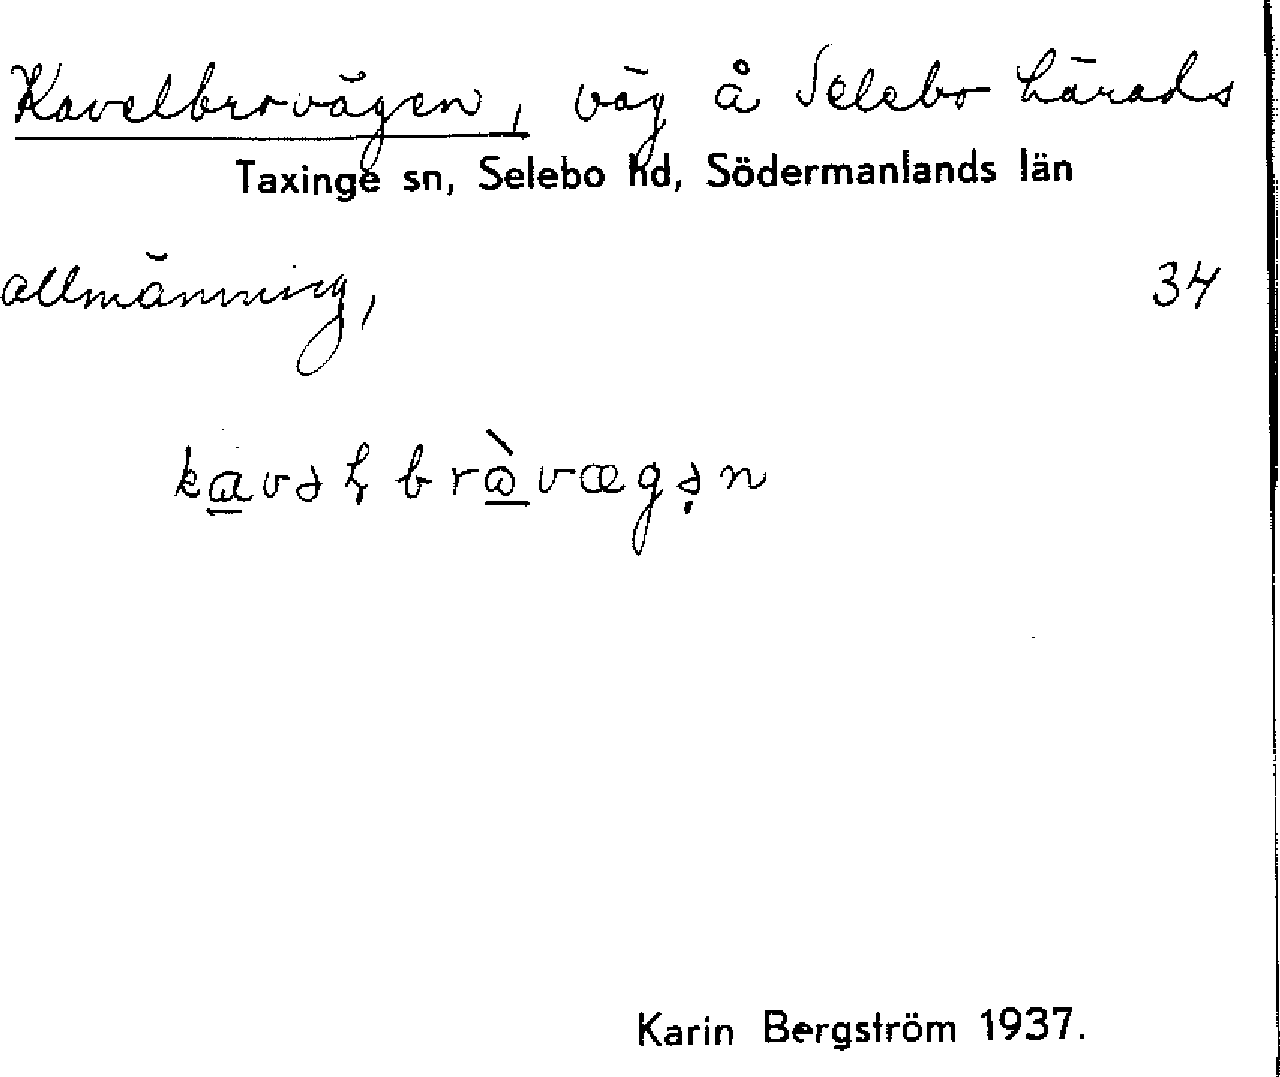 Kavelbrovägen, väg å Selebo härads
Taxinge sn, Selebo hd, Södermanlands län
allmänning, 34
Karin Bergström 1937.